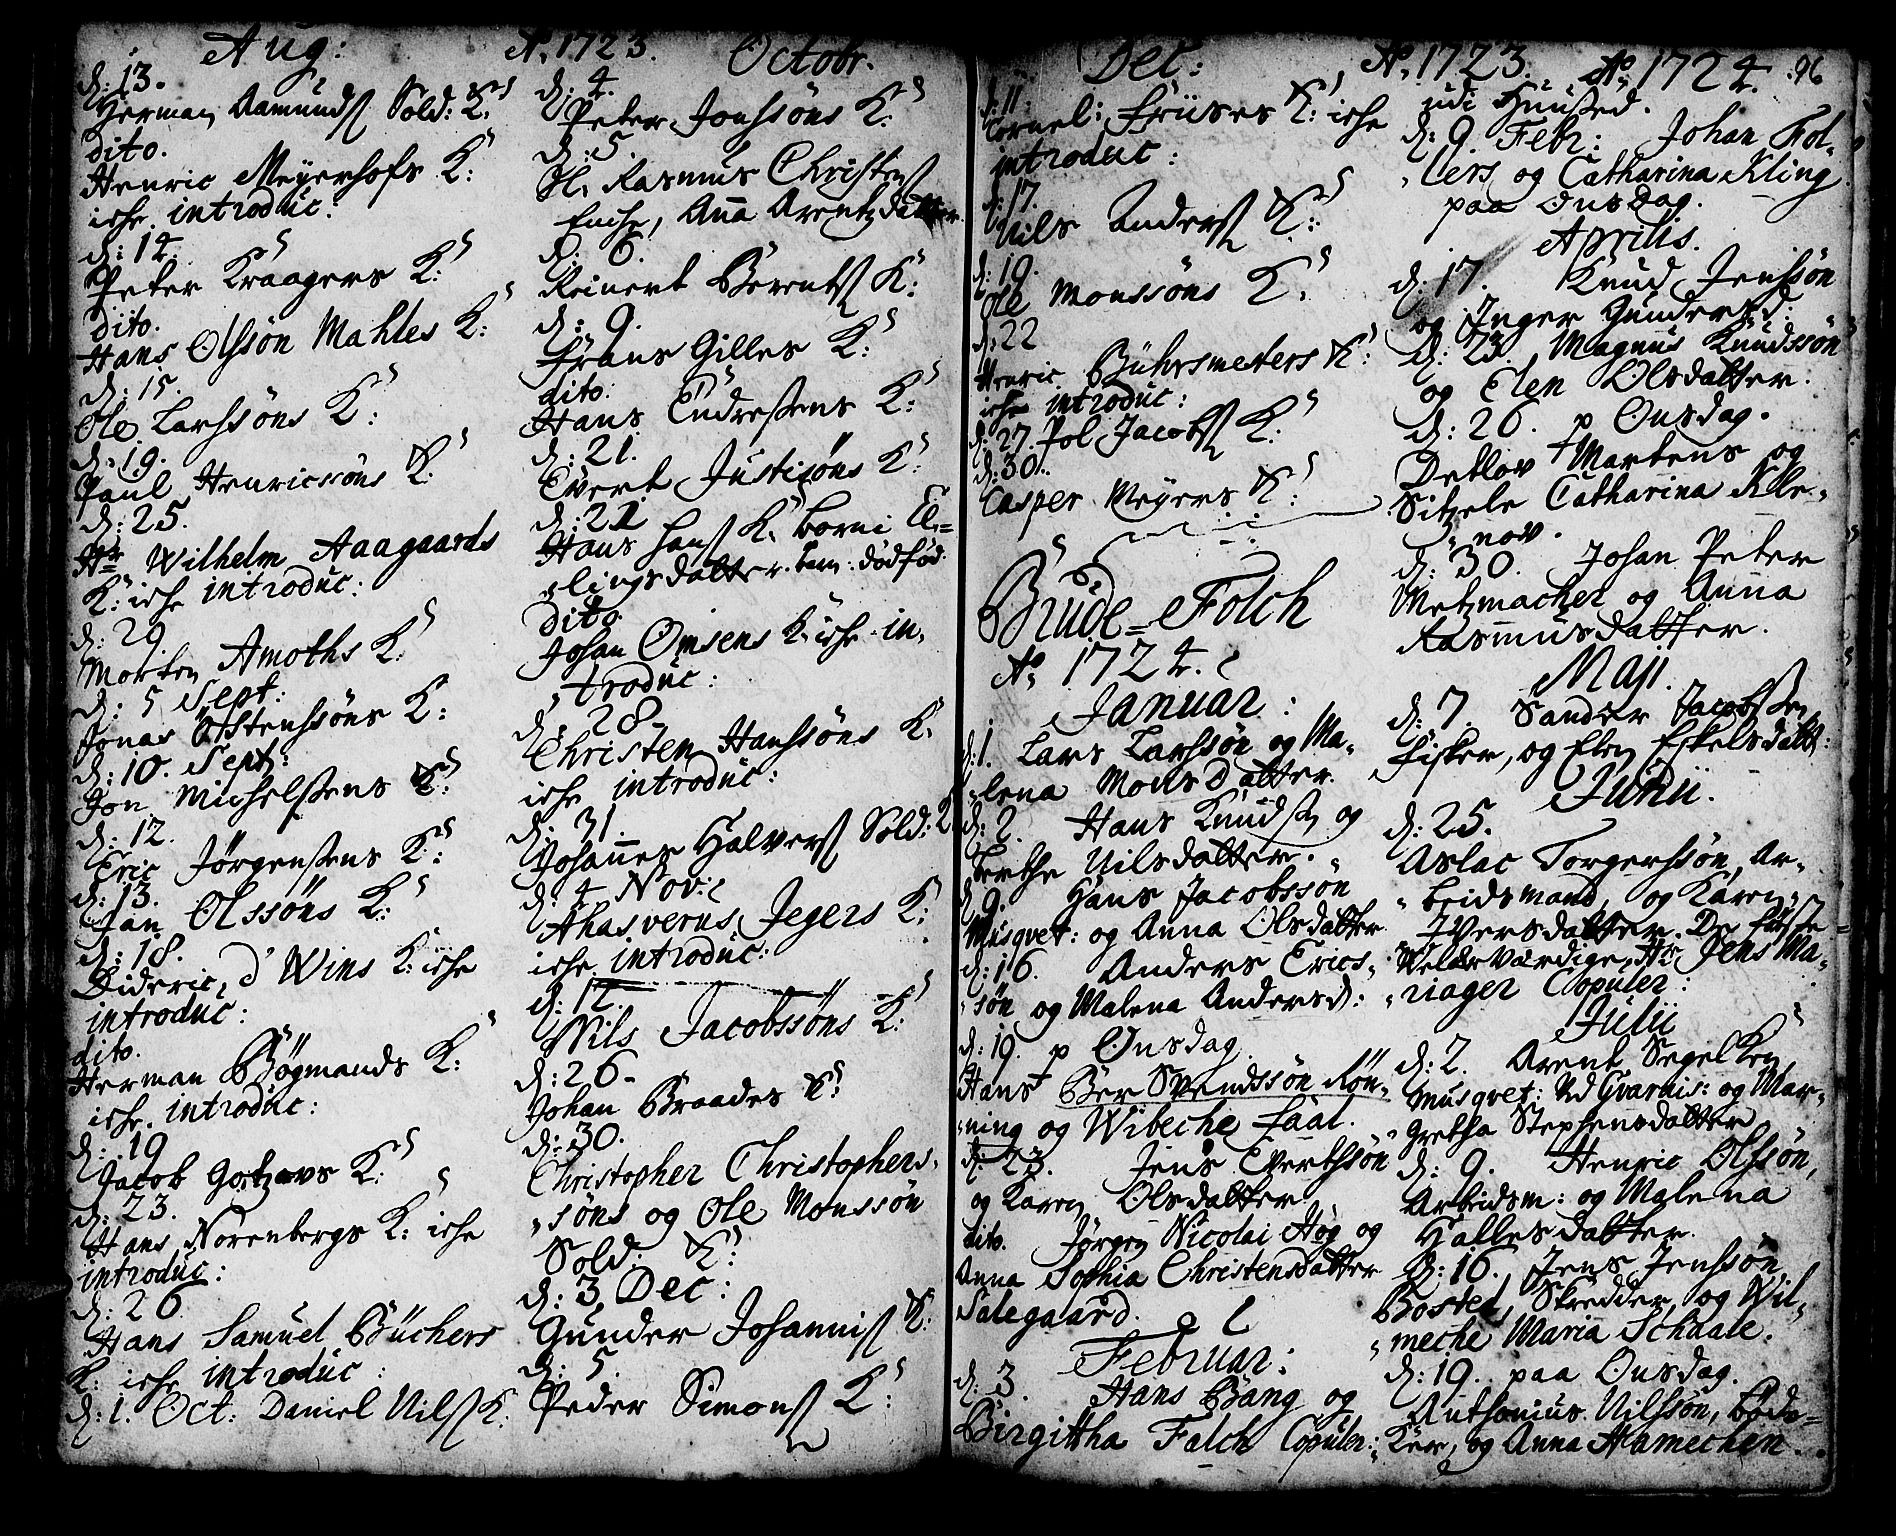 Aug: Aº 1723. Octobr.
d: 13.
Herman Aamunds Sold: K:
dito.
Henric Meyerhofs K:
iche introduc:
d: 14.
Peter Kraagers K:
dito.
Hans Olsson Mahles K:
d: 15.
Ole Larssøns K:
d: 19.
Paul Henricssøns K:
d: 25.
Hr Wilhelm Aagaards
K: iche introduc:
d: 29
Morten Amoths K:
d: 5 Sept:
Jonas Østenssøns K:
d: 10. Sept:
Jon Michelsens K:
d: 12.
Eric Jørgensens K:
d: 13.
Jan Olssøns K:
d: 18.
Dideric d' Wins K: iche
introduc:
dito.
Herman Bøgmands K:
iche introduc:
d: 19
Jacob K:
d: 23.
Hans Norenbergs K: iche
introduc:
d: 26
Hans Samuel Büchers
K: iche introduc:
d: 1. Oct: Daniel Nils K:
d: 4.
Peter Jonssøns K:
d: 5.
Sl. Rasmus Christens
Enche, Anna Arentzdatter
d: 6.
Reinert Berents K:
d: 9.
Frans Gilles K:
dito:
Hans Endresens K:
d: 21.
Evert Justisøns K:
d: 22
Hans Hans K: Borni El=
lingsdatter. barn: dødfød
Dito
Johan Omsens K: iche in,
troduc:
d: 28.
Christen Hanssøns K:
iche introduc:
d: 31.
Johannes Halvers Sold: K
d: 4 Nov:
Ahasverus Jegers K:
iche introduc:
d: 12.
Nils Jacobssøns K:
d: 26.
Johan Braades K:
d: 30.
Christopher Christophers,
søns og Ole Monssøn
Sold: K:
d: 3 Dec:
Gunder Johannis K:
d: 5.
Peder Simons K:
Dec: Aº 1723.
d: 11.
Cornel: Friises K: iche
introduc:
d: 17.
Nils Anders K:
d: 19.
Ole Monssøns K:
d: 22
Henric Buhrsmeters K:
iche introduc:
d: 27. Pol Jacobs K:
d: 30.
Casper Meyers K:
Brude=Folch
Aº 1724.
Januar:
d: 1. Lars Larssøn og Ma,
lena Monsdatter.
d: 2. Hans Knuds og
Berthe Nilsdatter.
d: 9. Hans Jacobssøn
Musqvet: og Anna Olsdatter
d: 16. Anders Erics,
søn og Malena Andersd:
d: 19. p Onsdag
Hans Ber Svendssøn Røn,
ning og Wibeche Faal.
d: 23. Jens Evertssøn
og Karen Olsdatter
dito. Jørgen Nicolai Høg og
Anna Sophia Christensdatter
Salegaard.
Februar:
d: 3. Hans Bang og
Birgitha Falch Copuler:
Aº 1724. 96
udi Huused.
d: 9. Febr: Johan Fol,
lers og Catharina Kling
paa Onsdag.
Aprilis.
d: 17. Knud Jenssøn
og Inger Gundersd:
d: 23. Magnus Knudssøn
og Elen Olsdatter.
d: 26. p Onsdag.
Detlov Martens og
Sitzele Catharina Kle,
nov.
d: 30. Johan Peter
Metzmacher og Anna
Rasmusdatter.
Maji.
d: 7. Sander Jacobsen
Fisker, og Elen Eskelsdatt:
Junii.
d: 25.
Aslac Torgerssøn, Ar,
beidsmand, og Karen
Iversdatter. De
Velærværdige Hr Jens Ma,
riager Copuler:
Julii
d: 2. Arent Segelken
Musqvet: Ved Gvarnis: og Mar,
gretha Stephensdatter
d: 9. Henric Olssøn,
Arbidsm: og Malena
Hallesdatter.
d: 16. Jens Jenssøn
Bosted, Skredder, og Wil,
meche Maria Schaale.
d: 19. paa Onsdag.
Anthonius Nilssøn, Bød=
ker, og Anna Hamechen.